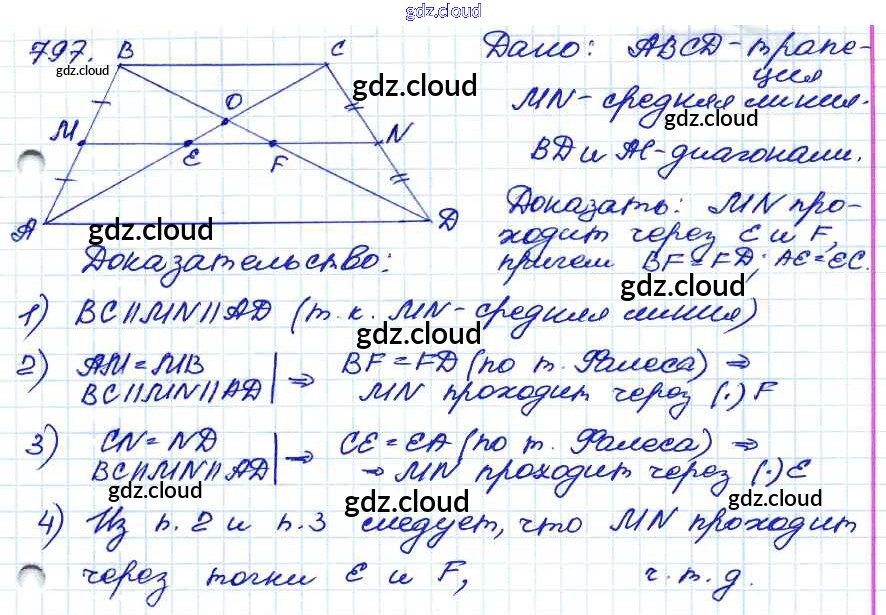 gdz.cloud
797.
gdz.cloud
B C
O
M N
E F
A D
gdz.cloud
gdz.cloud
Дано: ABCD - трапе-
ция
gdz.cloud
MN - средняя линия.
gdz.cloud
BD и AC - диагонали.
Доказать: MN про-
ходит через E и F,
причем BF = FD; AE = EC.
gdz.cloud
Доказательство:
1) BC || MN || AD (т. к. MN - средняя линия)
gdz.cloud
2) AM = MB | ⇒ BF = FD (по т. Фалеса) ⇒
BC || MN || AD | MN проходит через (·) F
gdz.cloud
3) CN = ND | ⇒ CE = EA (по т. Фалеса) ⇒
BC || MN || AD | ⇒ MN проходит через (·) E
gdz.cloud
gdz.cloud
gdz.cloud
4) Из п. 2 и п. 3 следует, что MN проходит
через точки E и F, ч. т. д.
gdz.cloud